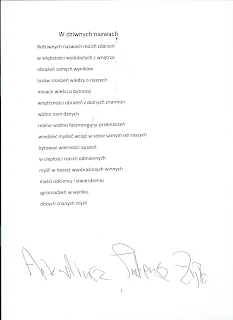 W dziwnych nazwach
Wdziwnych nazwach moich zdarzeń
w większości wydobytych z wnętrza
obrażeń samych wyników
losów znaczeń wiedzy o naszych
minach wieści o bytności
wnętrzności obrażeń z dolnych znamion
widno nam danych
realne widmo fatamorgana przeinaczeń
wiedzieć myśleć wciąż w sobie samym od naszych
bytowań wierności spojeń
w ciepłości czarze odmiennych
myśli w naszej wyobrażonych winnych
maści odcieniu i stwierdzeniu
zgromadzeń w wyniku
obcych znanych myśli
1